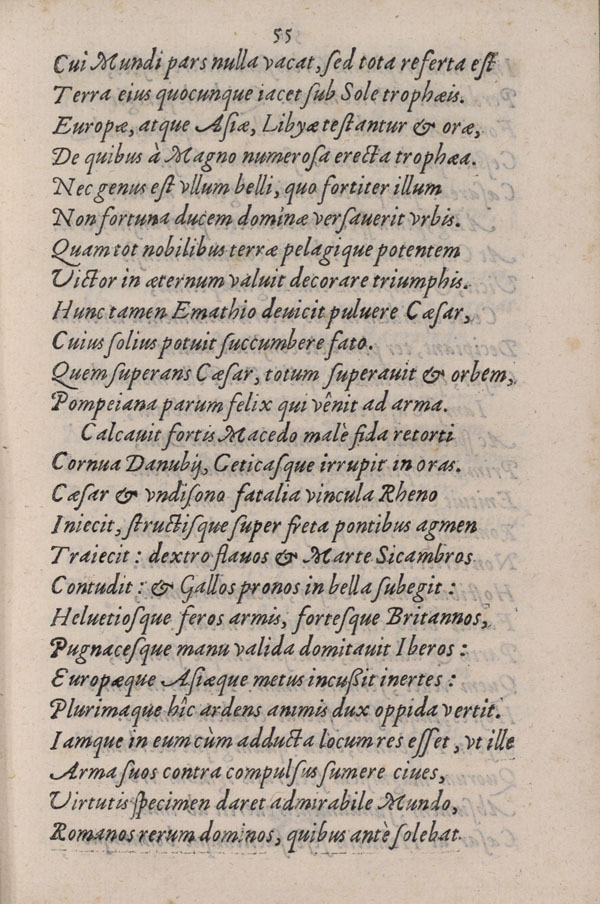 55
Cui Mundi pars nulla vacat, ſed tota referta eſt
Terra eius quocunque iacet ſub Sole trophæis.
Europæ, atque Aſiæ, Libyæ teſtantur & oræ,
De quibus à Magno numeroſa erecta trophæa.
Nec genus eſt vllum belli, quo fortiter illum
Non fortuna ducem dominæ verſauerit vrbis.
Quam tot nobilibus terræ pelagique potentem
Victor in æternum valuit decorare triumphis.
Hunc tamen Emathio deuicit puluere Cæſar,
Cuius ſolius potuit ſuccumbere fato.
Quem ſuperans Cæſar, totum ſuperauit & orbem,
Pompeiana parum felix qui vênit ad arma.
Calcauit fortis Macedo malè fida retorti
Cornua Danubij, Geticaſque irrupit in oras.
Cæſar & vndiſono fatalia vincula Rheno
Iniecit, ſtructiſque ſuper freta pontibus agmen
Traiecit: dextro flauos & Marte Sicambros
Contudit: & Gallos pronos in bella ſubegit:
Heluetioſque feros armis, forteſque Britannos,
Pugnaceſque manu valida domitauit Iberos:
Europæque Aſiæque metus incußit inertes:
Plurimaque hîc ardens animis dux oppida vertit.
Iamque in eum cùm adducta locum res eſſet, vt ille
Arma ſuos contra compulſus ſumere ciues,
Virtutis ſpecimen daret admirabile Mundo,
Romanos rerum dominos, quibus antè ſolebat